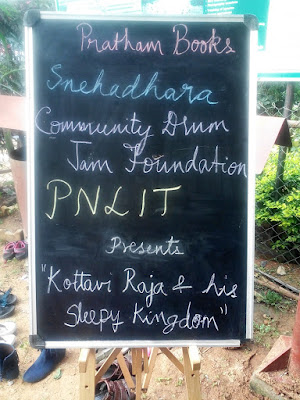 Pratham Books
Snehadhara
Community Drum
Jam Foundation
PNLIT
Presents
"Kottavi Raja & his
Sleepy Kingdom"